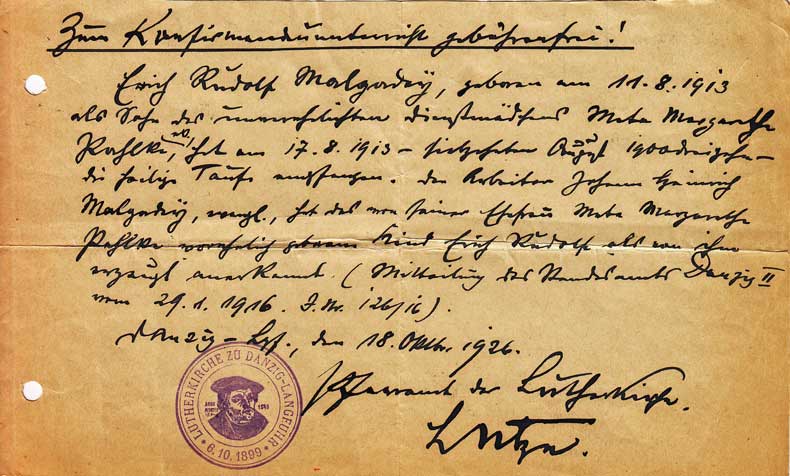 Zum Konfirmandenunterricht gebührenfrei!
Erich Rudolf Malgadey, geboren am 11.8.1913
als Sohn des unverehelichten Dienstmädchens Meta Margarethe
Pahlke, ev., hat am 17.8.1913 – siebzehnten August 1900dreizehn –
die heilige Taufe empfangen. Der Arbeiter Johann Heinrich
Malgadey, evangl., hat das von seiner Ehefrau Meta Margarethe
Pahlke vorehelich geborene Kind Erich Rudolf als von ihm
erzeugt anerkannt. (Mitteilung des Standesamts Danzig II
vom 29.1.1916. J.Nr. 126/16).
Danzig-Lgf., den 18. Oktbr. 1926.
Pfarramt der Lutherkirche.
LUTHERKIRCHE ZU DANZIG-LANGFUHR
6.10.1899